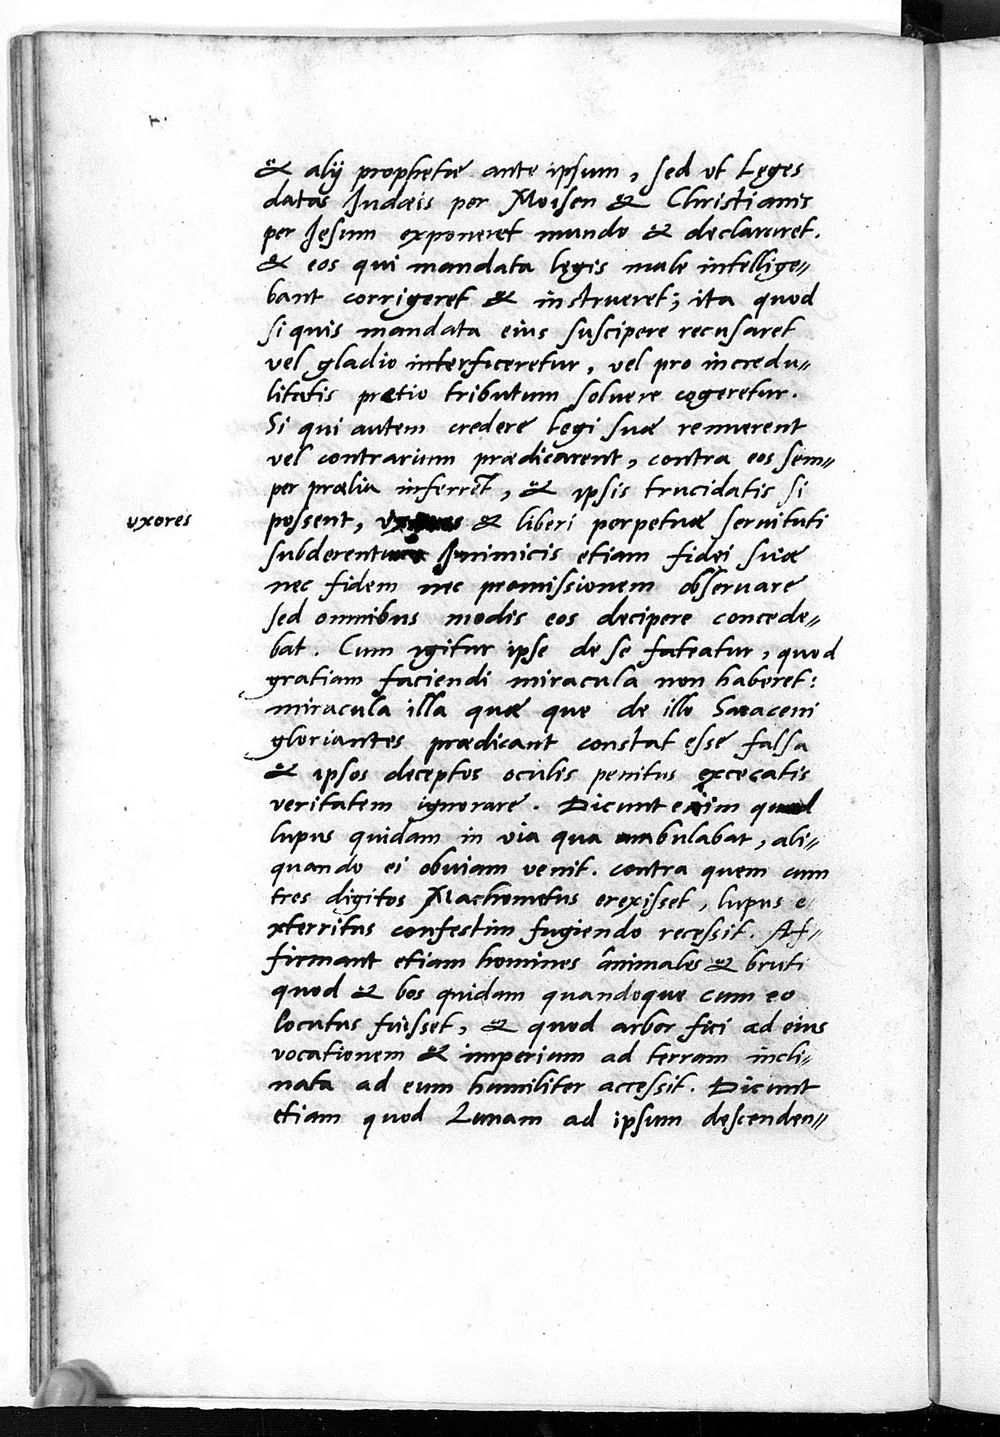 & alij prophetæ ante ipsum, sed vt Leges
datas Judæis per Moisen & Christianis
per Jesum exponeret mundo & declararet.
& eos qui mandata legis male intellige„
bant corrigeret & instrueret; ita quod
si quis mandata eius suscipere recusaret
vel gladio interficeretur, vel pro incredu„
litatis prætio tributum soluere cogeretur.
Si qui autem credere legi suæ rennuerent
vel contrarium prædicarent, contra eos sem„
per prælia inferret, & ipsis trucidatis si
vxores
possent, & liberi perpetuæ seruituti
subderentur Inimicis etiam fidei suæ
nec fidem nec promissionem obseruare
sed omnibus modis eos decipere concede„
bat. Cum igitur ipse de se fateatur, quod
gratiam faciendi miracula non haberet:
miracula illa quæ que de illo Saraceni
gloriantes prædicant constat esse falsa
& ipsos deceptos oculis penitus excecatis
veritatem ignorare. Dicunt enim quod
lupus quidam in via qua ambulabat, ali„
quando ei obuiam venit. contra quem cum
tres digitos Machometus erexisset, lupus e
xterritus confestim fugiendo recessit. Af„
firmant etiam homines animales & bruti
quod & bos quidam quandoque cum eo
locutus fuisset, & quod arbor fici ad eius
vocationem & imperium ad terram incli„
nata ad eum humiliter accessit. Dicunt
etiam quod Lunam ad ipsum descenden„